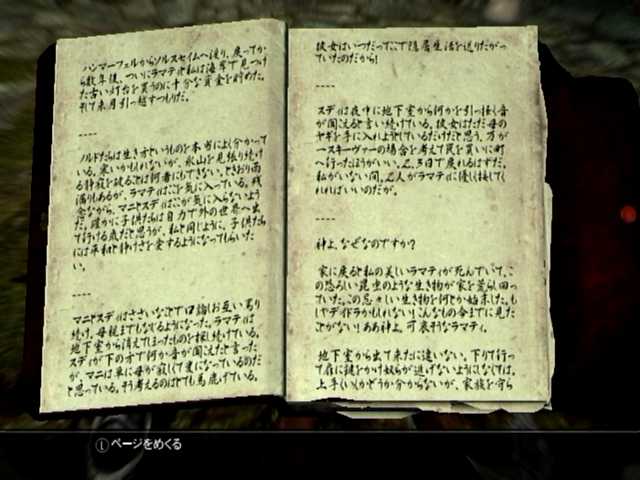 ハンマーフェルからソルスセイムへ渡り、戻ってか
ら数年後、ついにラマティと私は海岸で見つけ
た古い灯台を買うのに十分な資金を貯めた。
そして来月引っ越すつもりだ。
----
ノルドたちは生き方というものを本当によく分かって
いる。寒いかもしれないが、氷山を見張り続け
る静寂を破ることは何者にもできない。ときおり雨
漏りもあるが、ラマティはここを気に入っている。残
念ながら、マニとスディはここが気に入らないよう
だ。確かに子供たちは自力で外の世界へ出
て行ける歳だと思うが、私と同じように、子供たち
には平和と静けさを愛するようになってもらいた
い。
----
マニとスディはささいなことで口論しお互い罵り
続け、母親までもなじるようになった。ラマティは
地下室から消えてしまったものを探し続けている。
スディが下の方で何か音が聞こえたと言った
が、マニは単に母が寂しくて変になっているのだ
と思っている。そう考えるのはとても馬鹿げている。
彼女はいつだってここで隠居生活を送りたがっ
ていたのだから!
----
スディは夜中に地下室から何かを引っ掻く音
が聞こえると言い続けている。彼女はただ母の
ヤギを手に入れようとしているだけだと思う。万が
一スキーヴァーの場合を考えて罠を買いに町
へ行ったほうがいい。2、3日で戻れるはずだ。
私がいない間、2人がラマティに優しく接してく
れればいいのだが。
----
神よ、なぜなのですか?
家に戻ると私の美しいラマティが死んでいて、こ
の恐ろしい昆虫のような生き物が家を荒らし回
っていた。この忌々しい生き物を何とか始末した。も
しやデイドラかもしれない! こんなもの今までに見た
ことがない! ああ神よ、可哀そうなラマティ。
地下室から出て来たに違いない。下りて行っ
て扉に鍵をかけ奴らが逃げないようにしなくては。
上手くいくかどうか分からないが、家族を守ら
Ⓛ ページをめくる